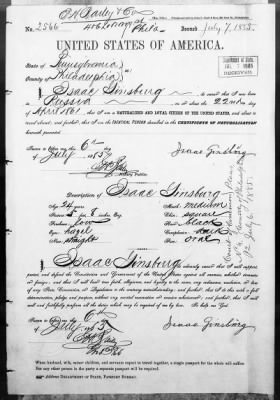 No. 2566
Issued July 7, 1885.
UNITED STATES OF AMERICA.
State of Pennsylvania
County of Philadelphia
I, Isaac Ginsburg, do swear that I was born
in Russia, on or about the 22nd day
of April 1861; that I am a NATURALIZED AND LOYAL CITIZEN OF THE UNITED STATES, and about to
travel abroad; and further, that I am the IDENTICAL PERSON described in the CERTIFICATE OF NATURALIZATION
herewith presented.
Sworn to before me, this 6th
day of July 1885
Isaac Ginsburg
Notary Public.
Description of Isaac Ginsburg
Age: 24 years
Mouth: medium
Stature: 5 feet 8 inches, Eng.
Chin: square
Hair: black
Eyes: hazel
Complexion: dark
Nose: straight
Face: oval
I, Isaac Ginsburg, do solemnly swear that I will support,
protect, and defend the Constitution and Government of the United States against all enemies, whether domestic
or foreign; and that I will bear true faith, allegiance, and loyalty to the same, any ordinance, resolution, or law
of any State, Convention, or Legislature to the contrary notwithstanding; and further, that I do this with a full
determination, pledge, and purpose, without any mental reservation or evasion whatsoever; and further, that I will
well and faithfully perform all the duties which may be required of me by law. So help me God.
Sworn to before me, this 6th
day of July 1885
Isaac Ginsburg
When husband, wife, minor children, and servants expect to travel together, a single passport for the whole will suffice.
For any other person in the party a separate passport will be required.
ADDRESS DEPARTMENT OF STATE, PASSPORT BUREAU.